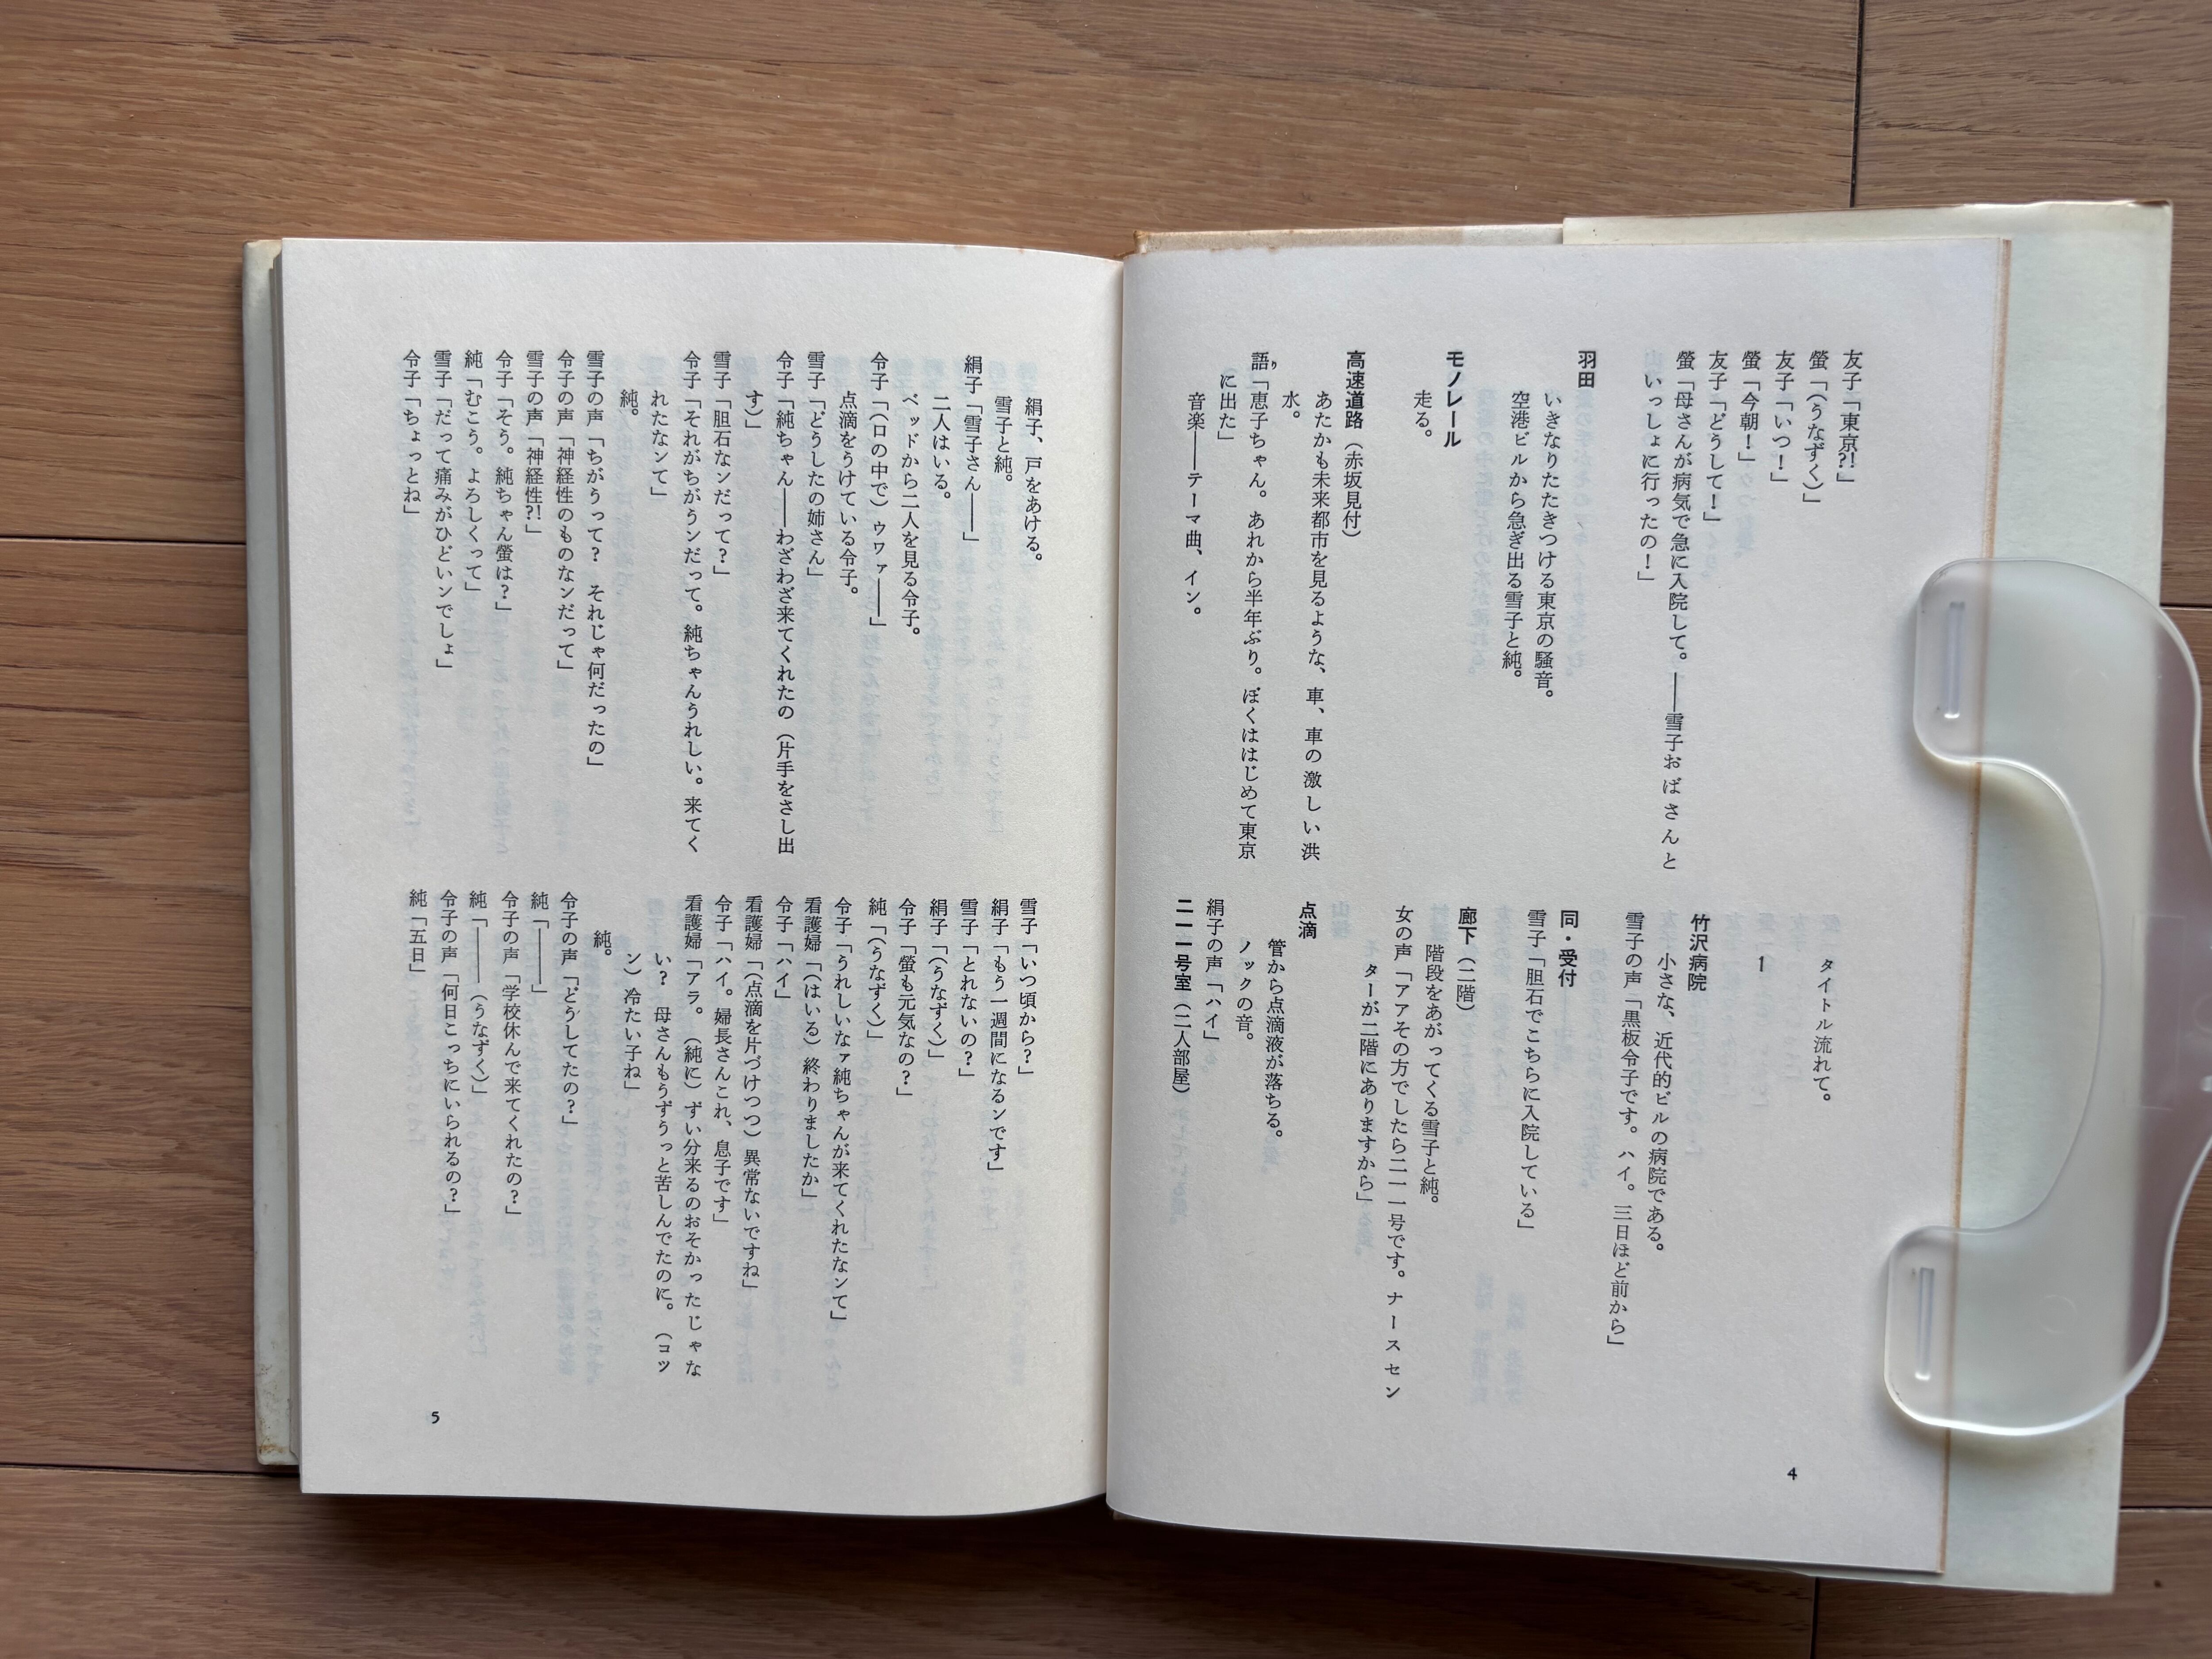 友子「東京⁈」
螢「(うなずく)」
友子「いつ!」
螢「今朝!」
友子「どうして!」
螢「母さんが病気で急に入院して。――雪子おばさんと
いっしょに行ったの!」
羽田
いきなりたたきつける東京の騒音。
空港ビルから急ぎ出る雪子と純。
モノレール
走る。
高速道路(赤坂見付)
あたかも未来都市を見るような、車、車の激しい洪
水。
語り「恵子ちゃん。あれから半年ぶり。ぼくははじめて東京
に出た」
音楽――テーマ曲、イン。
タイトル流れて。
1
竹沢病院
小さな、近代的ビルの病院である。
雪子の声「黒板令子です。ハイ。三日ほど前から」
同・受付
雪子「胆石でこちらに入院している」
廊下(二階)
階段をあがってくる雪子と純。
女の声「アアその方でしたら二一一号です。ナースセン
ターが二階にありますから」
点滴
管から点滴液が落ちる。
ノックの音。
絹子の声「ハイ」
二一一号室(二人部屋)
4
絹子、戸をあける。
雪子と純。
絹子「雪子さん――」
二人はいる。
ベッドから二人を見る令子。
令子「(口の中で)ウワァ――」
点滴をうけている令子。
雪子「どうしたの姉さん」
令子「純ちゃん――わざわざ来てくれたの(片手をさし出
す)」
雪子「胆石なンだって?」
令子「それがちがうンだって。純ちゃんうれしい。来てく
れたなンて」
純。
雪子の声「ちがうって? それじゃ何だったの」
令子の声「神経性のものなンだって」
雪子の声「神経性⁈」
令子「そう。純ちゃん螢は?」
純「むこう。よろしくって」
雪子「だって痛みがひどいンでしょ」
令子「ちょっとね」
雪子「いつ頃から?」
絹子「もう一週間になるンです」
雪子「とれないの?」
絹子「(うなずく)」
令子「螢も元気なの?」
純「(うなずく)」
令子「うれしいなァ純ちゃんが来てくれたなンて」
看護婦「(はいる)終わりましたか」
令子「ハイ」
看護婦「(点滴を片づけつつ)異常ないですね」
令子「ハイ。婦長さんこれ、息子です」
看護婦「アラ。(純に)ずい分来るのおそかったじゃな
い? 母さんもうずうっと苦しんでたのに。(コツ
ン)冷たい子ね」
純。
令子の声「どうしてたの?」
純「――」
令子の声「学校休んで来てくれたの?」
純「――(うなずく)」
令子の声「何日こっちにいられるの?」
純「五日」
5